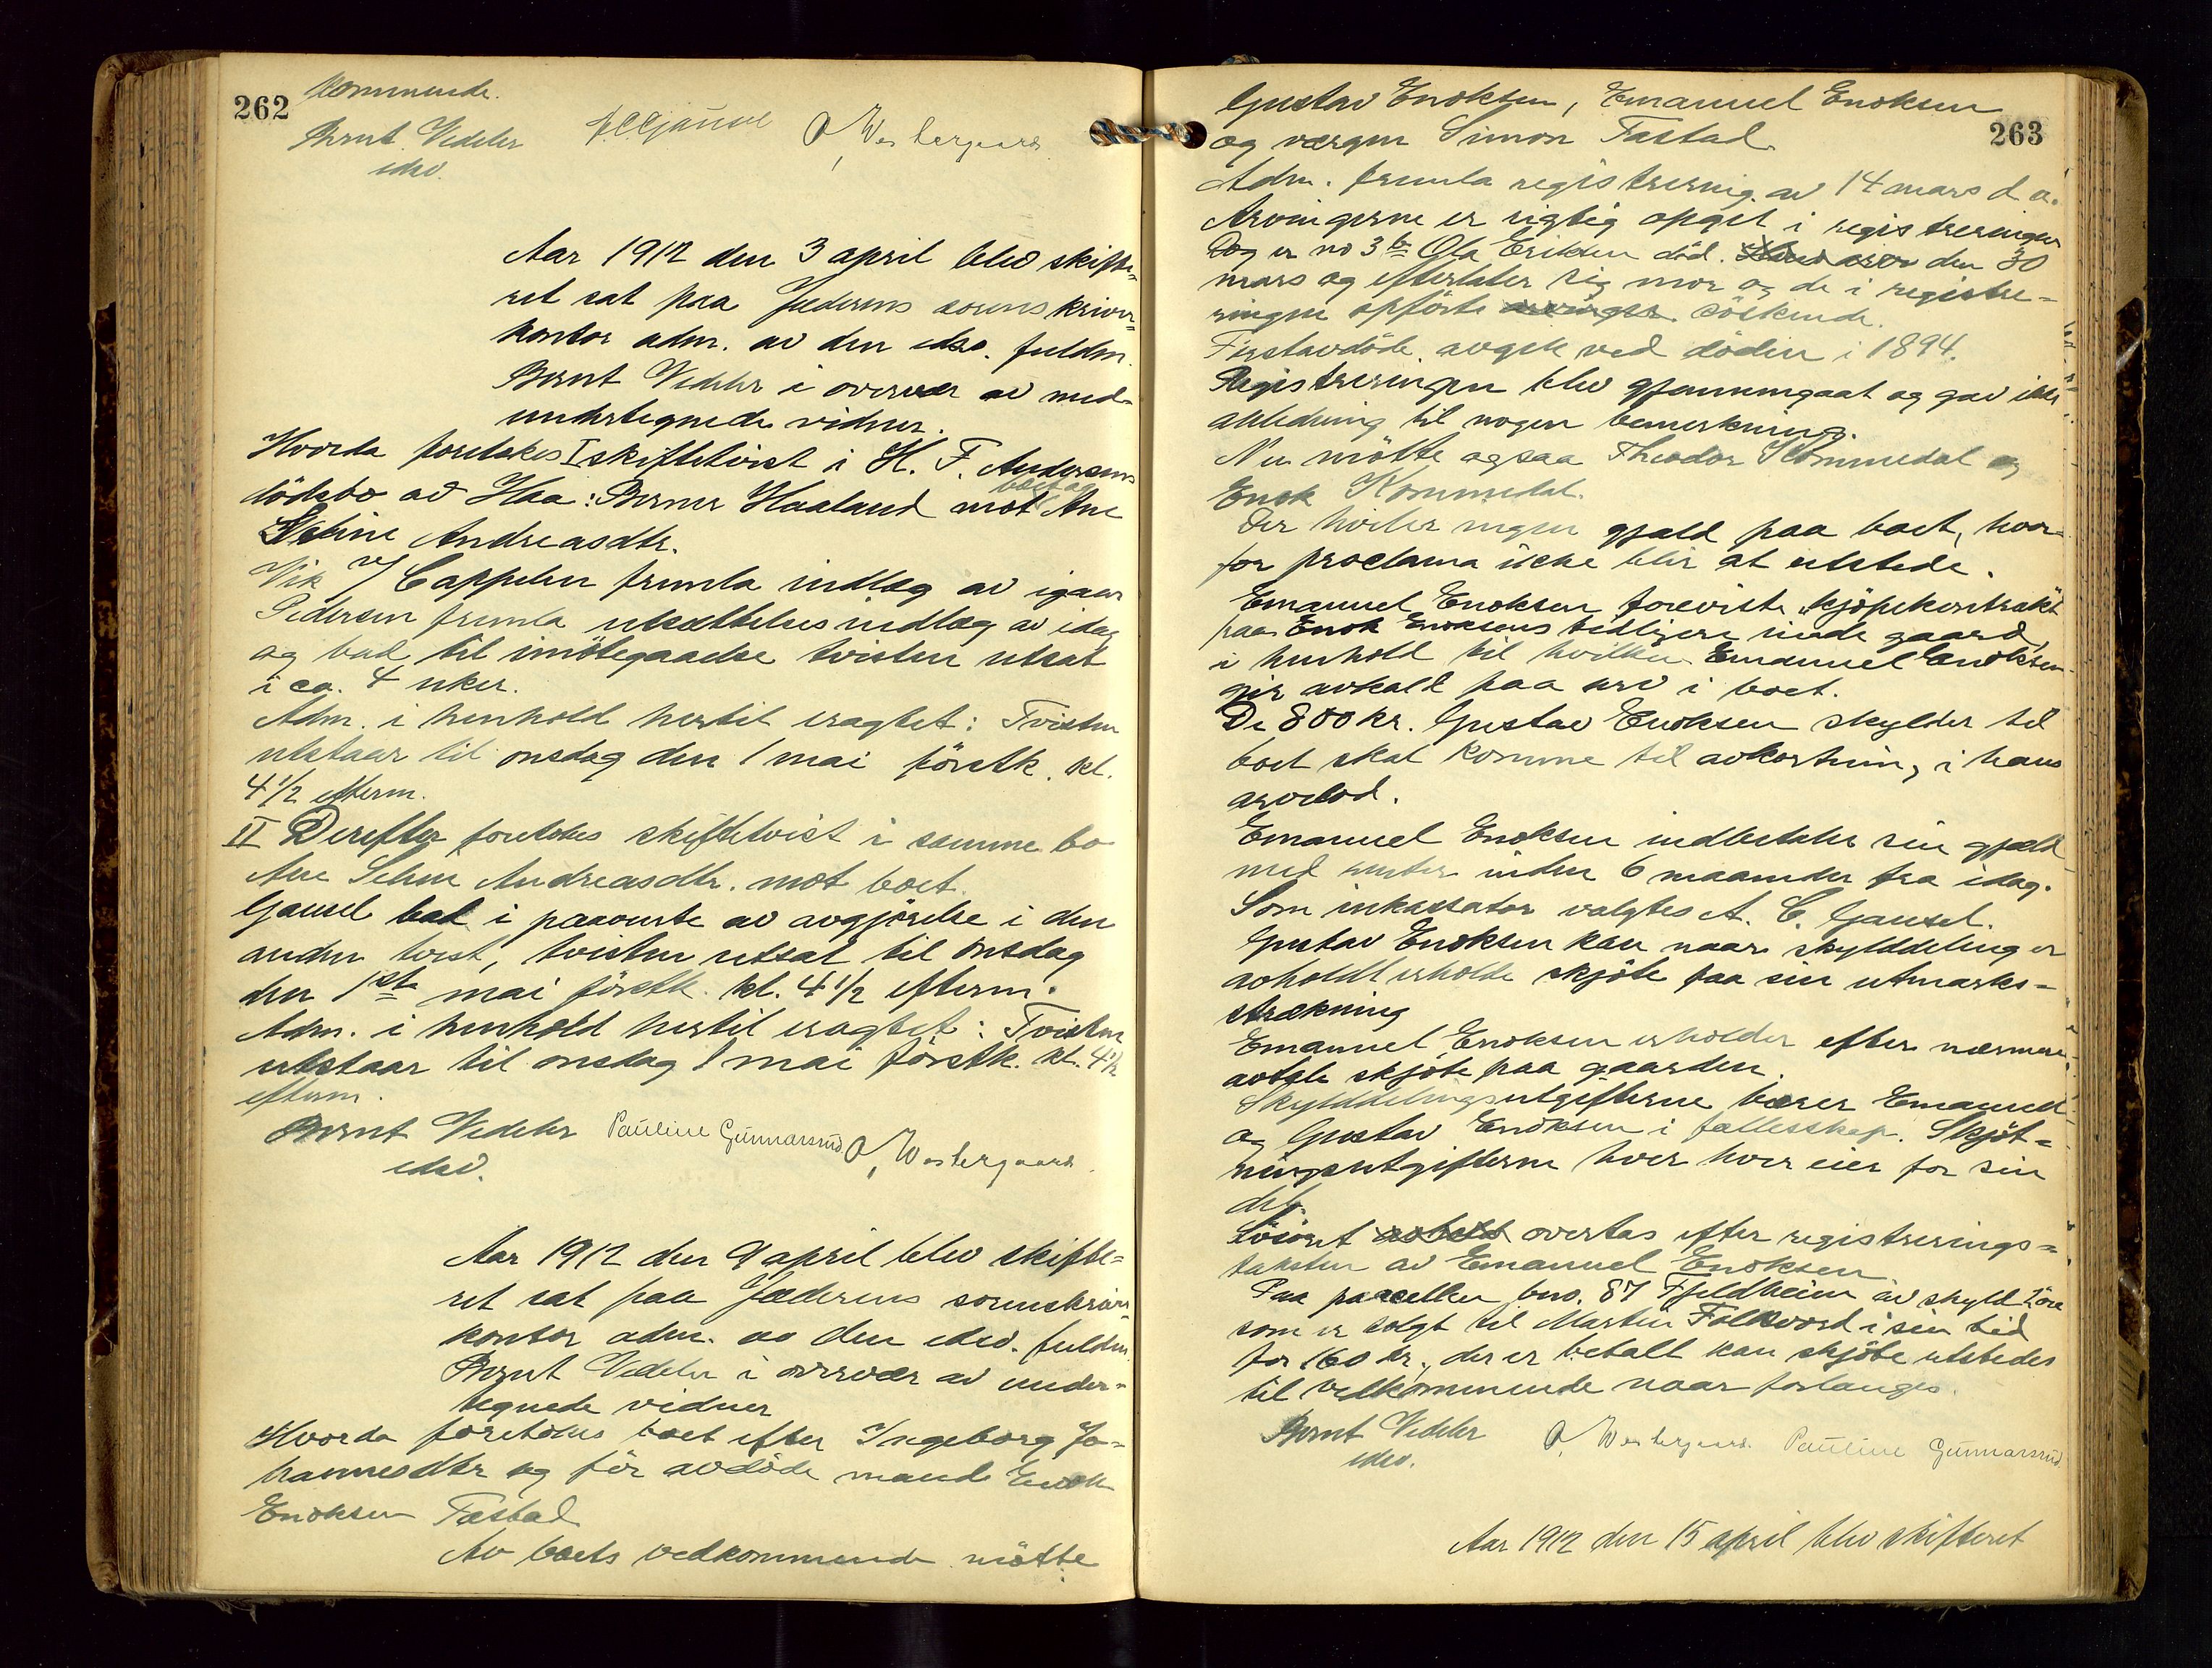 262
kommende.
Bernt Vedeler
edsv.
O. Westergaard
Aar 1912 den 3 april blev skifte-
ret sat paa Jæderens sorenskriver-
kontor adm. av den edsv. fuldm.
Bernt Vedeler i overvær av med-
undertegnede vidner.
Hvorda foretokes I skiftetvist i H. F. Andersens
dødsbo av Haa: Berner Haaland mot boet og Ane
Seline Andreasdtr.
Vik v/ Cappelen fremla indlæg av igaar
Pedersen fremla utsættelsesindlæg av idag
og bad til imøtegaaelse tvisten utsat
i ca. 4 uker.
Adm. i henhold hertil eragtet: Tvisten
utstaar til onsdag den 1 mai førstk. kl.
4 1/2 efterm.
II Derefter foretokes skiftetvist i samme bo
Ane Seline Andreasdtr. mot boet.
Gausel bad i paavente av avgjørelse i den
anden tvist, tvisten utsat til onsdag
den 1ste mai førstk. kl. 4 1/2 efterm.
Adm. i henhold hertil eragtet: Tvisten
utstaar til onsdag 1 mai førstk. kl. 4 1/2
efterm.
Bernt Vedeler Pauline Gunnarsrud O. Westergaard
edsv.
Aar 1912 den 9 april blev skifte-
ret sat paa Jæderens sorenskriver-
kontor adm. av den edsv. fuldm.
Bernt Vedeler i overvær av under-
tegnede vidner
Hvorda foretokes boet efter Ingeborg Jo-
hannesdtr og før avdøde mand Enok
Enoksen Tastad
Av boets vedkommende møtte:
263
Gustav Enoksen, Emanuel Enoksen
og vergen Simon Tastad.
Adm. fremla registrering av 14 mars d. a.
Arvingerne er rigtig opgit i registreringen
Dog er no 3 b Ola Eriksen død den 30
mars og efterlater sig mor og de i registre-
ringen opførte arvinger søskende.
Førstavdøde avgik ved døden i 1894.
Registreringen blev gjennemgaat og gav ikke
anledning til nogen bemerkning.
Nu møtte ogsaa Theodor Kommedal og
Enok Kommedal.
Der hviler ingen gjæld paa boet, hvor-
for proclama ikke blir at utstede.
Emanuel Enoksen foreviste kjøpekontrakt
paa Enok Enoksens tidligere eiede gaard,
i henhold til hvilken Emanuel Enoksen
gir avkald paa arv i boet.
De 800 kr. Gustav Enoksen skylder til
boet skal komme til avkortning i hans
arvelod.
Emanuel Enoksen indbetaler sin gjæld
med renter inden 6 maaneder fra idag.
Som inkassator valgtes A. C. Gausel.
Gustav Enoksen kan naar skylddeling er
avholdt erholde skjøte paa sin utmarks-
strækning
Emanuel Enoksen erholder efter nærmere
avtale skjøte paa gaarden.
Skylddelingsutgifterne bærer Emanuel
og Gustav Enoksen i fællesskap. Skjøt-
ningsutgifterne hver eier for sin
del.
Løsøret overtas efter registrerings-
taksten av Emanuel Enoksen
Paa parcellen bno. 87 Fjeldheim av skyld 2 øre
som er solgt til Martin Folkvord i sin tid
for 160 kr., der er betalt kan skjøte utstedes
til vedkommende naar forlanges.
Bernt Vedeler O. Westergaard Pauline Gunnarsrud
edsv.
Aar 1912 den 15 april blev skifteret